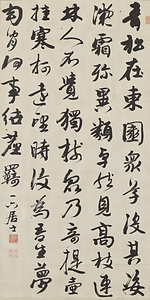 青松在東園眾草沒其姿
凝霜殄異類卓然見高枝連
林人不覺獨樹眾乃奇提壺
挂寒柯遠望時復為吾生夢
幻間何事紲塵羈
居士